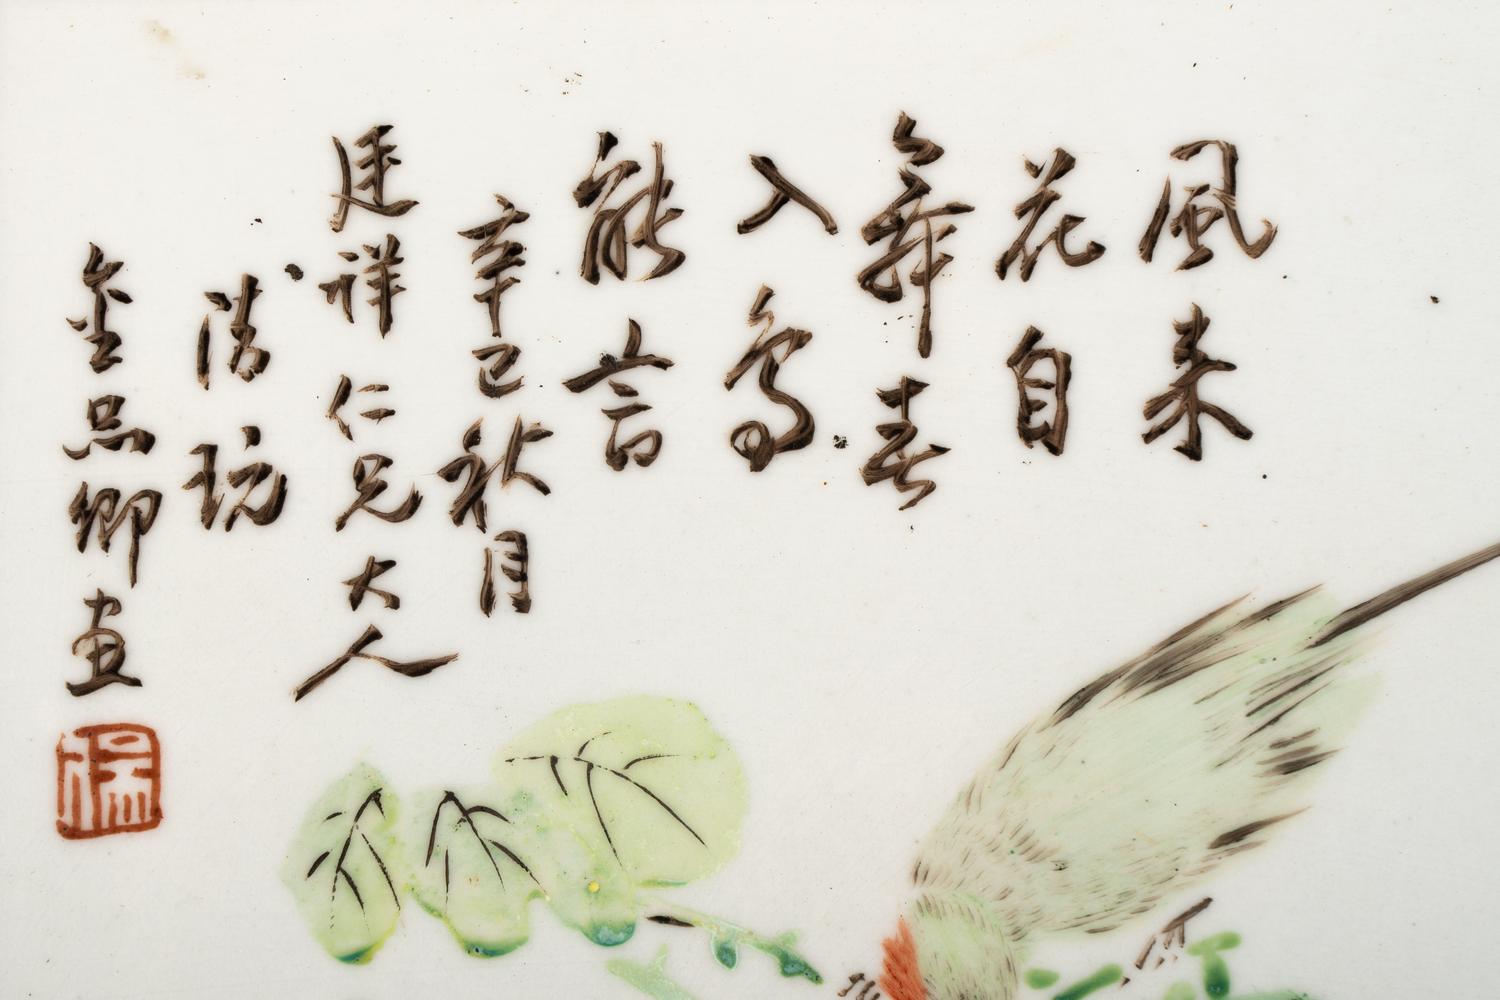 風来
花自
舞春
入鳥
能言
辛已秋月
廷祥仁兄大人
清玩
金品卿画